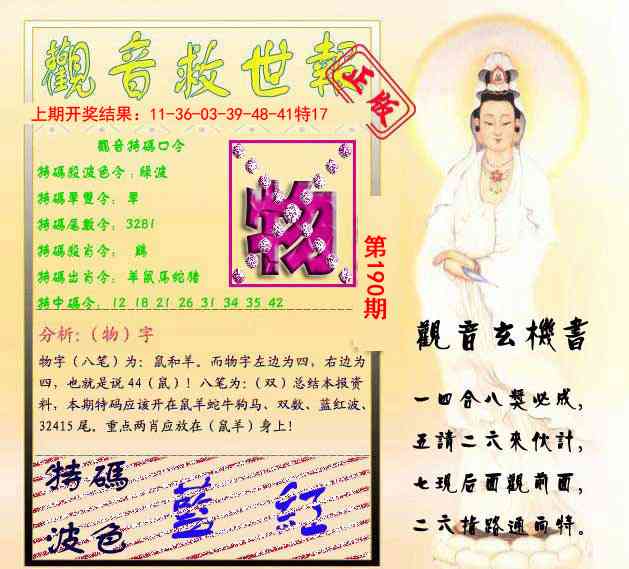 觀音救世報
正版
上期开奖结果：11-36-03-39-48-41特17
觀音特碼口令
特碼殺波色令：綠波
特碼單雙令： 單
特碼尾數令： 3281
特碼殺肖令： 鷄
特碼出肖令： 羊鼠馬蛇猪
特中碼令： 12 18 21 26 31 34 35 42
物
第190期
分析:（物）字
物字（八笔）为：鼠和羊。而物字左边为四，右边为
四，也就是说 44（鼠）！八笔为：（双）总结本报资
料，本期特码应该开在鼠羊蛇牛狗马、双数、蓝红波、
32415 尾。重点两肖应放在（鼠羊）身上！
特碼
波色
藍 紅
觀音玄機書
一四合八獎必成，
五請二六來伙計，
七现后面觀前面，
二六指路通而特。